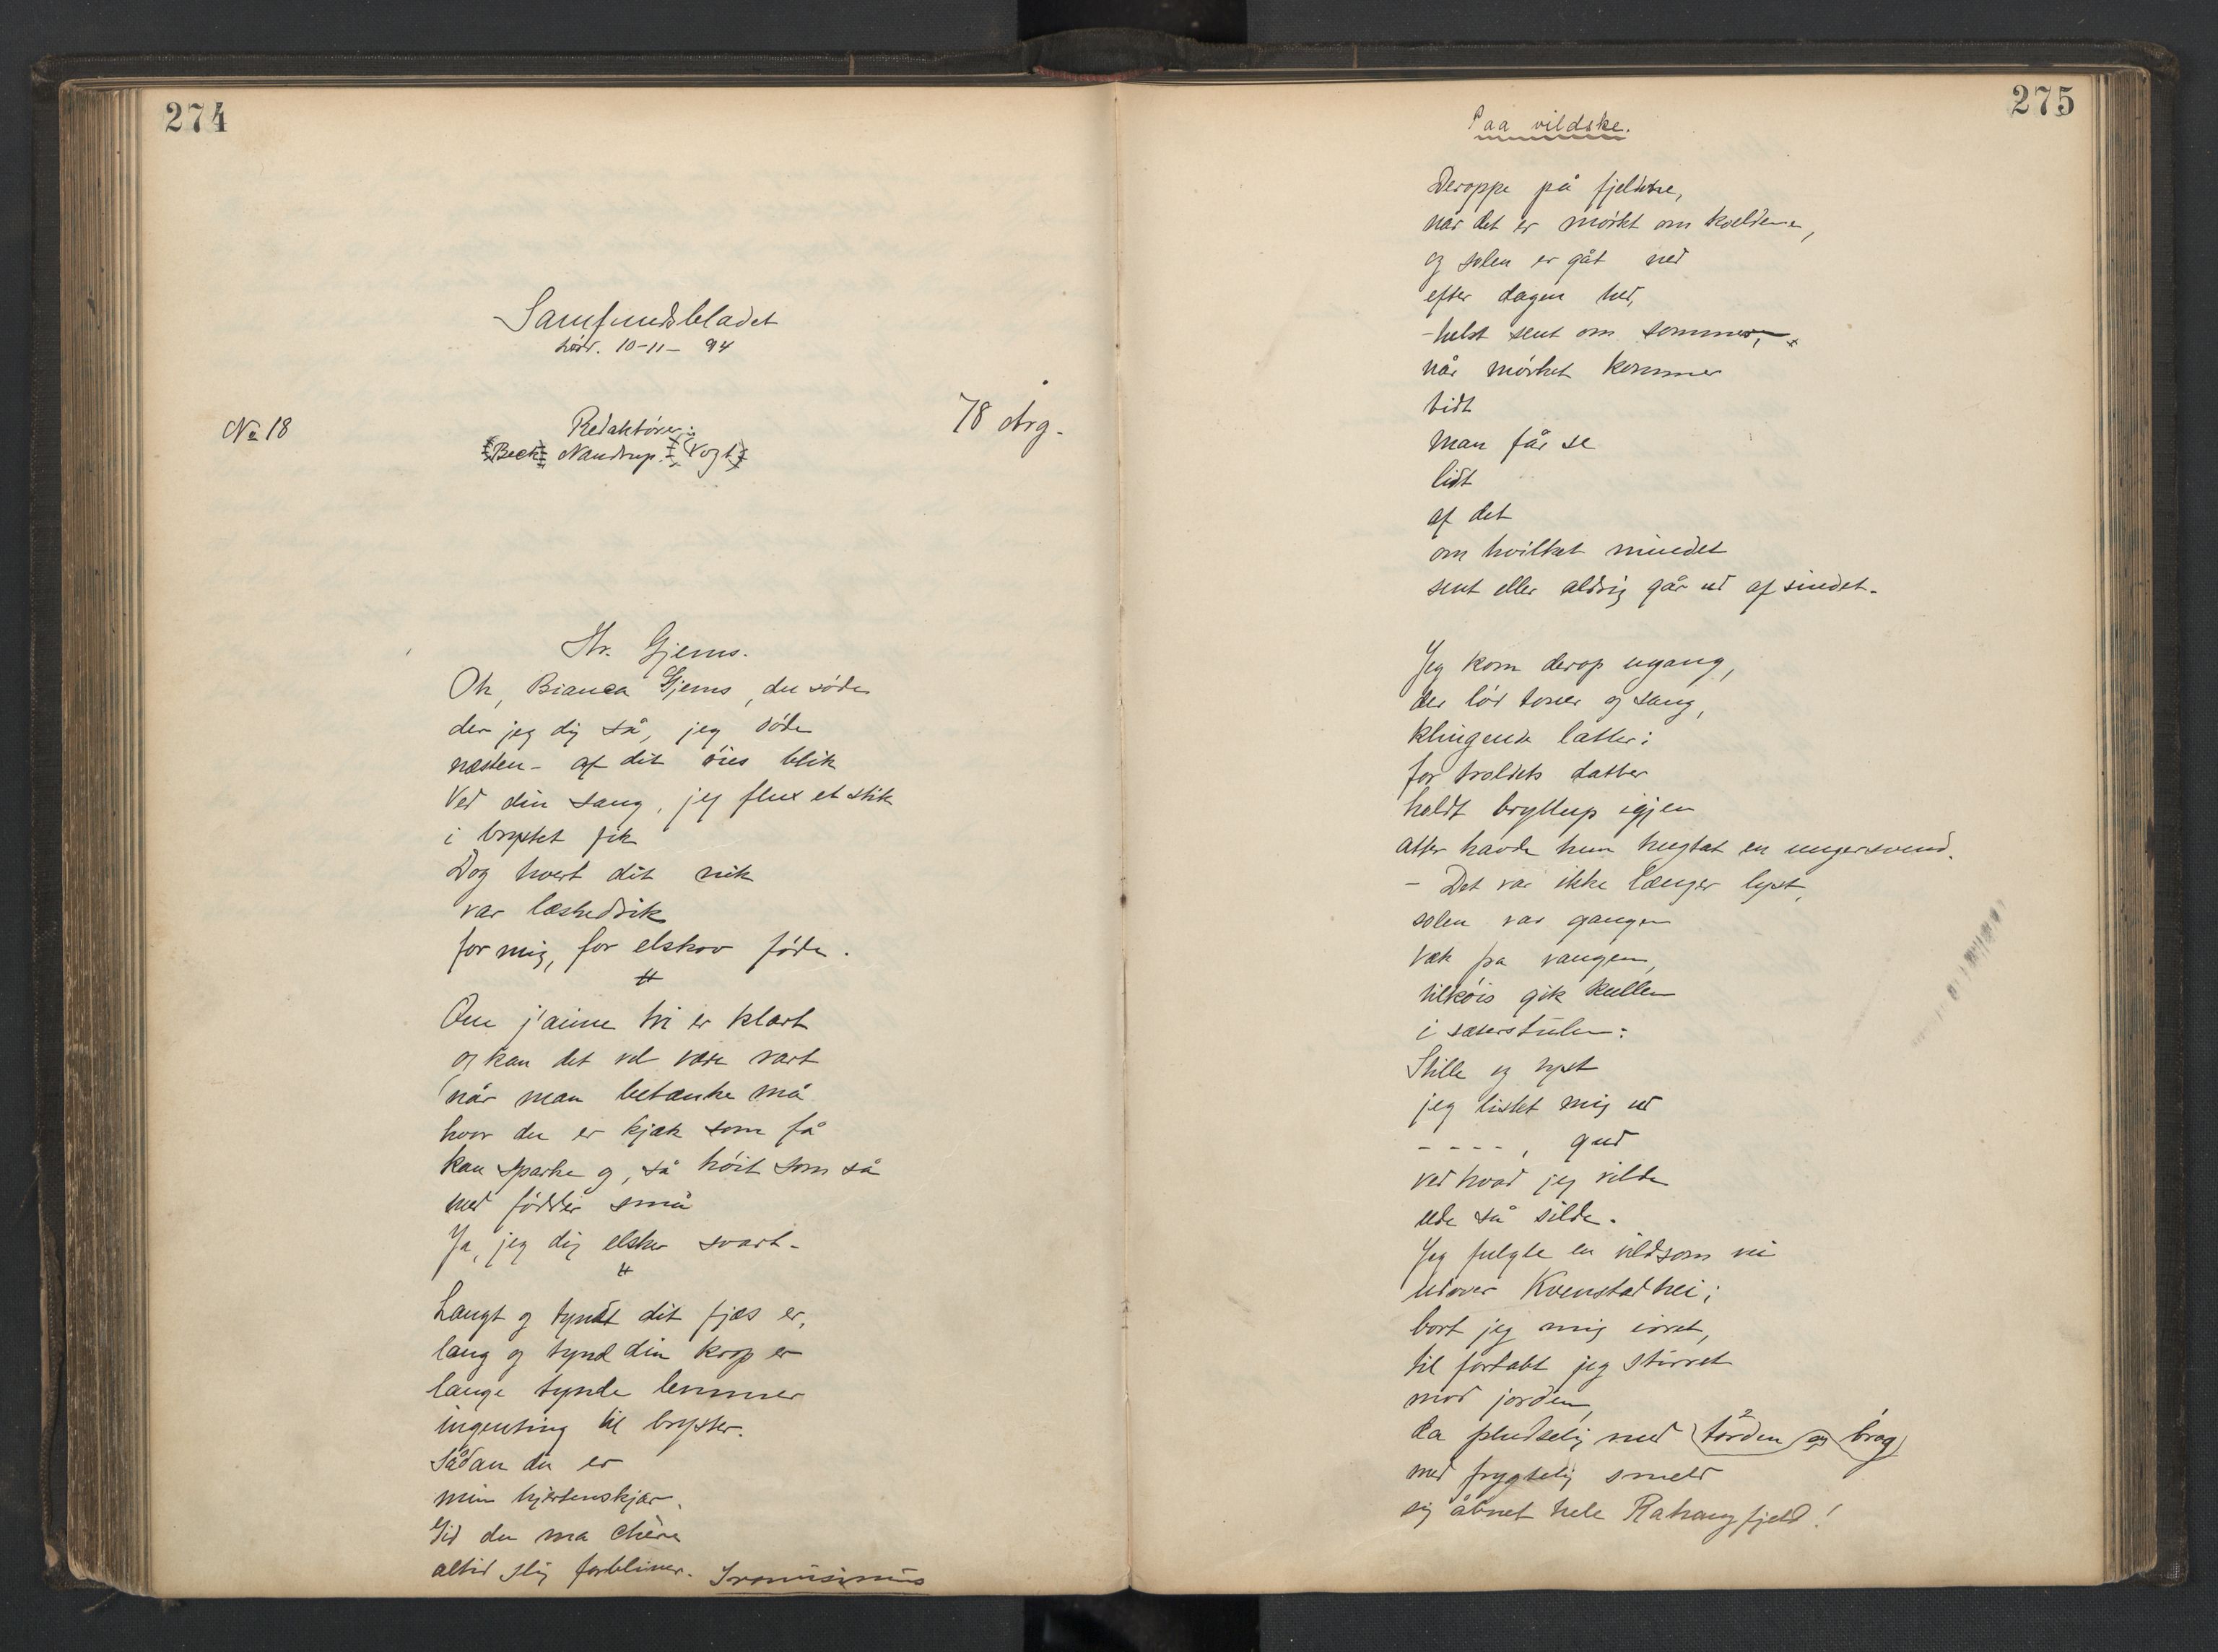 274
Samfundsbladet
Lørd. 10-11- 94
No 18
78 Årg.
Redaktører:
(Beck) Nandrup. (Vogt)
Hr. Gjems.
Oh, Bianca Gjems, du søde
der jeg dig så, jeg døde
næsten - af dit øies blik
Ved din sang, jeg flux et stik
i brystet fik
Dog hvert dit nik
var læskedrik
for mig, for elskov føde.
#
Que j'aime tri er klart
og kan det vel være rart
når man betænke må
hvor du er kjæk som få
kan sparke og, så høit som så
med fødder små
Ja, jeg dig elsker svært-
#
Langt og tyndt dit fjæs er,
lang og tynd din krop er
lange tynde lemmer
ingenting til bryster.
Sådan du er
min hjertenskjær,
Gid du ma chère
altid slig forbliver. Ironisimus
275
Paa vildske.
Deroppe på fjeldene,
når det er mørkt om kveldene,
og solen er gåt ned
efter dagen hed,
- helst sent om sommer,
når mørket kommer
tidt
man får se
lidt
af det
om hvilket mindet
sent eller aldrig går ud af sindet.
Jeg kom derop engang,
der lød toner og sang,
klingende latter:
for troldets datter
holdt bryllup igjen
atter havde hun hugtat en ungersvend.
- Det var ikke længer lyst,
solen var gangen
væk fra vangen,
tilkøis gik kullen
i sæterstulen:
Stille og tyst
jeg listet mig ud
- - - - , gud
ved hvad jeg vilde
ude så silde.
Jeg fulgte en vildsom vei
udover Kvenstadhei;
bort jeg mig irret,
til fortabt jeg stirret
mod jorden,
da pludselig med torden og brag
2 1
med frygtelig smeld
sig åbnet hele Rahaugfjeld!